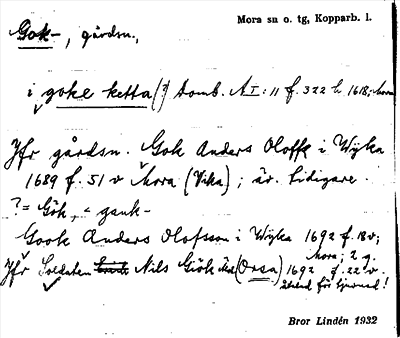 Mora sn o. tg, Kopparb. l.
Gok-, gårdsn.,
i goke ketta (?) Domb. AI:11 f. 322 h 1618; Mora
Jfr gårdsn. Gok Anders Oloffz i Wijka
1689 f. 51 v Mora (Vika); är. tidigare.
? = Gök, = gauk-
Gook Anders Olofsson i Wijka 1692 f. 18 v;
Mora; 2 g.
Jfr Soldaten Nils Göök (Orsa) 1692 f. 22 v.
Bror Lindén 1932